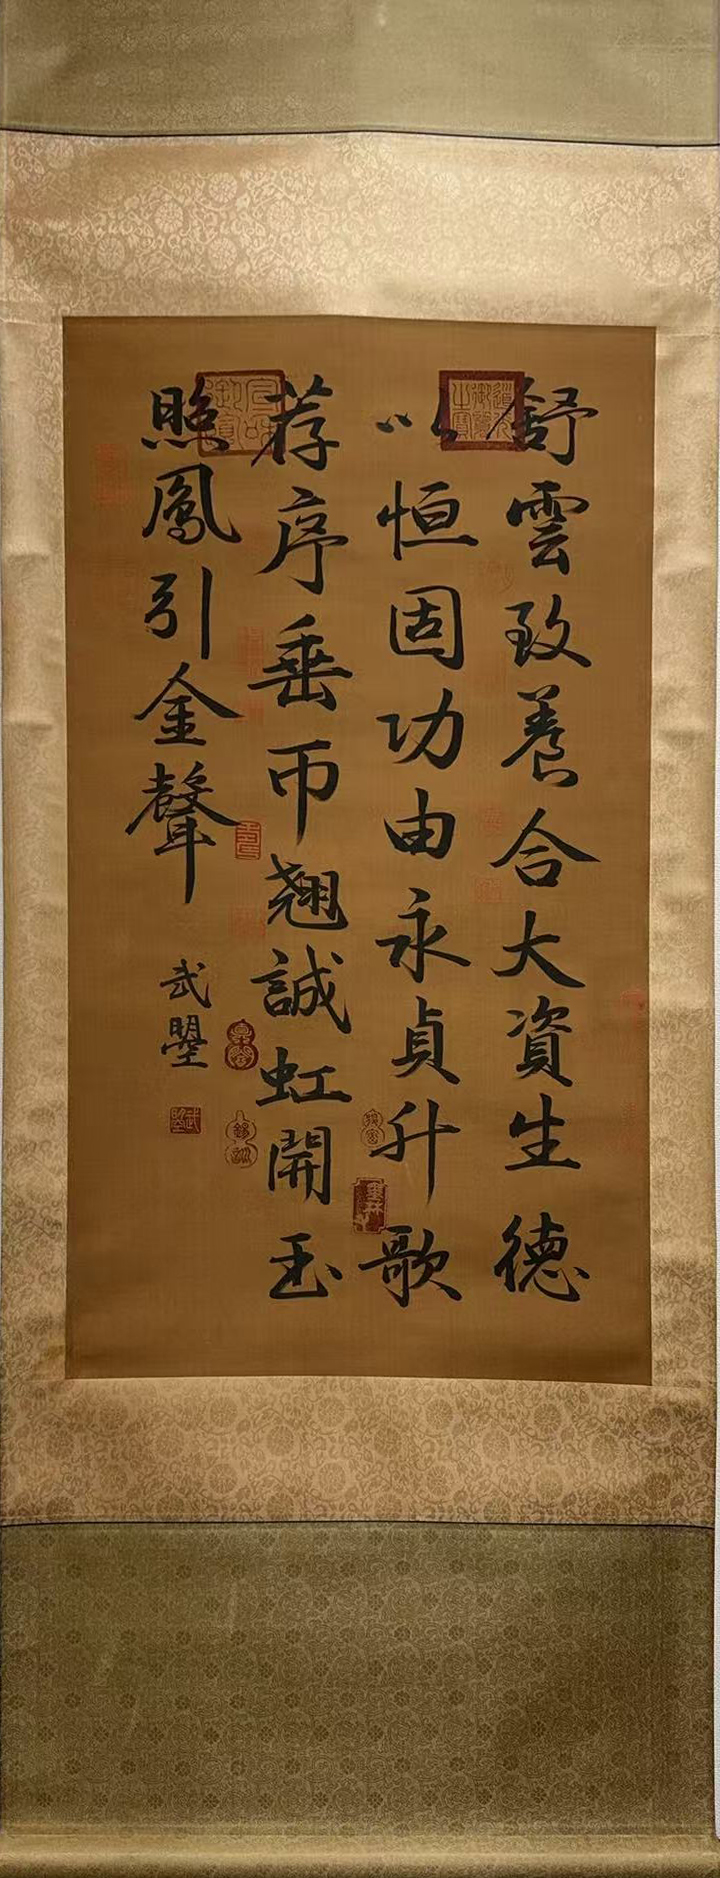 舒雲致養合大資生德
以恒固功由永貞升歌
荐序垂币翹誠虹開玉
照鳳引金聲
武曌
武曌